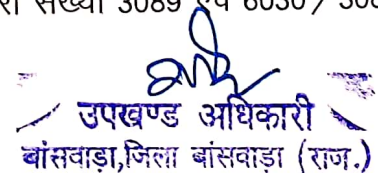 संख्या 3089 एवं 6030 /
उपखण्ड अधिकारी
बांसवाड़ा,जिला बांसवाड़ा (राज.)